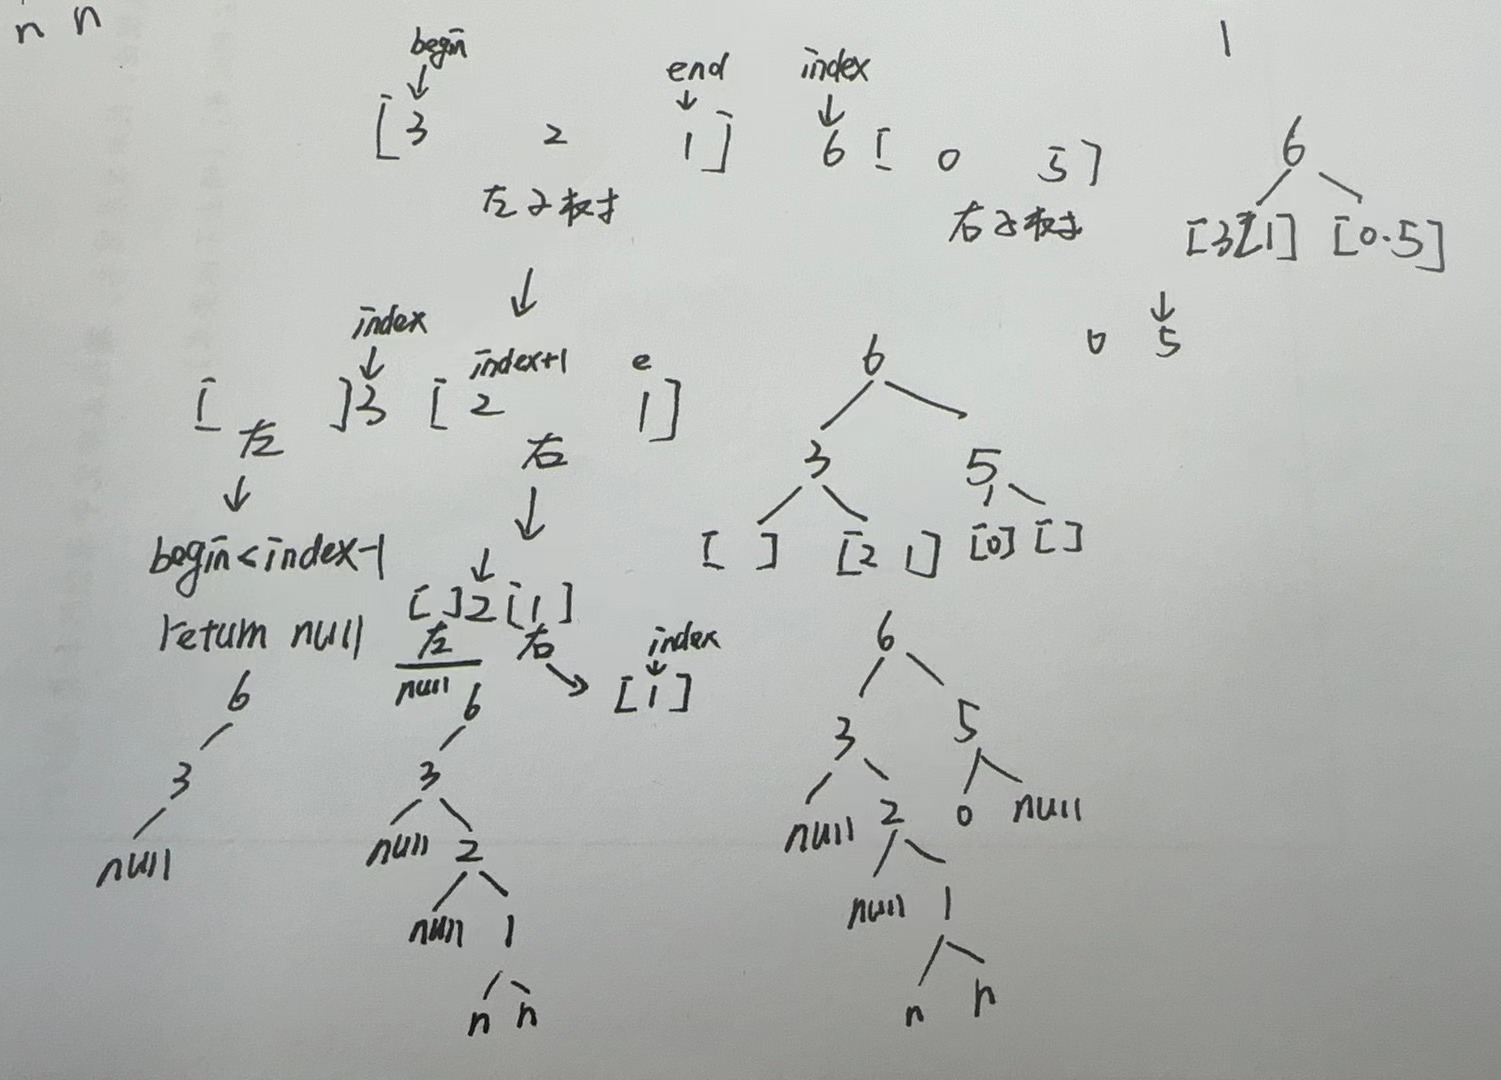 n n
begin
end index 1
[3 2 1] 6 [ 0 5]
左子树 右子树
6
[3 2 1] [0.5]
index
index+1 e
[ ]3 [2 1]
左 右
0 5
6
3 5
[ ] [2 1] [0] [ ]
begin<index-1
return null
[ ]2[1]
左 右
null
index
[1]
6
3
null
6
3
null 2
null 1
n n
6
3 5
null 2 0 null
null 1
n n